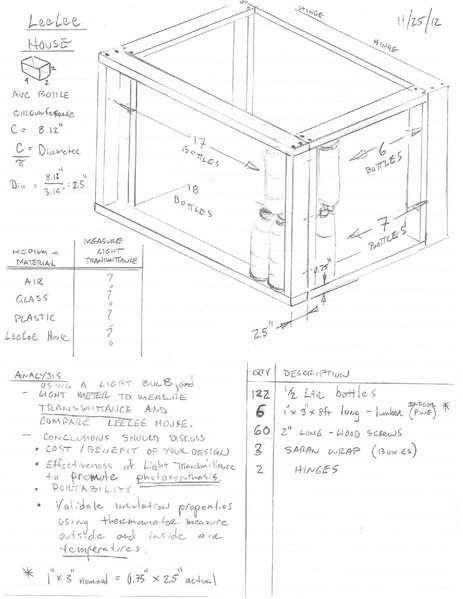 LeeLee
House
11/25/12
HINGE
HINGE
4 2 2
AVG BOTTLE
CIRCUMFERENCE
C = 8.12"
C/π = Diameter
Dia = 8.12"/3.14" = 2.5"
17
BOTTLES
18
BOTTLES
6
BOTTLES
7
BOTTLES
0.75"
2.5"
MEDIUM or MATERIAL
MEASURE LIGHT TRANSMITTANCE
AIR ?
GLASS ?
PLASTIC ?
LeeLee House ?
ANALYSIS
- USING A LIGHT BULB, and
LIGHT METER TO MEASURE
TRANSMITTANCE AND
COMPARE LEELEE HOUSE.
- CONCLUSIONS SHOULD DISCUSS
• COST/BENEFIT OF YOUR DESIGN
• Effectiveness of Light Transmittance
to promote photosynthesis.
• PORTABILITY
• Validate insulation properties
using thermometer measure
outside and inside air
temperatures.
* 1" x 3" nominal = 0.75" x 2.5" actual
QTY DESCRIPTION
122 1/2 Ltr bottles
6 1" x 3" x 8ft long - lumber (PINE) *
60 2" LONG - WOOD SCREWS
3 SARAN WRAP (BOXES)
2 HINGES